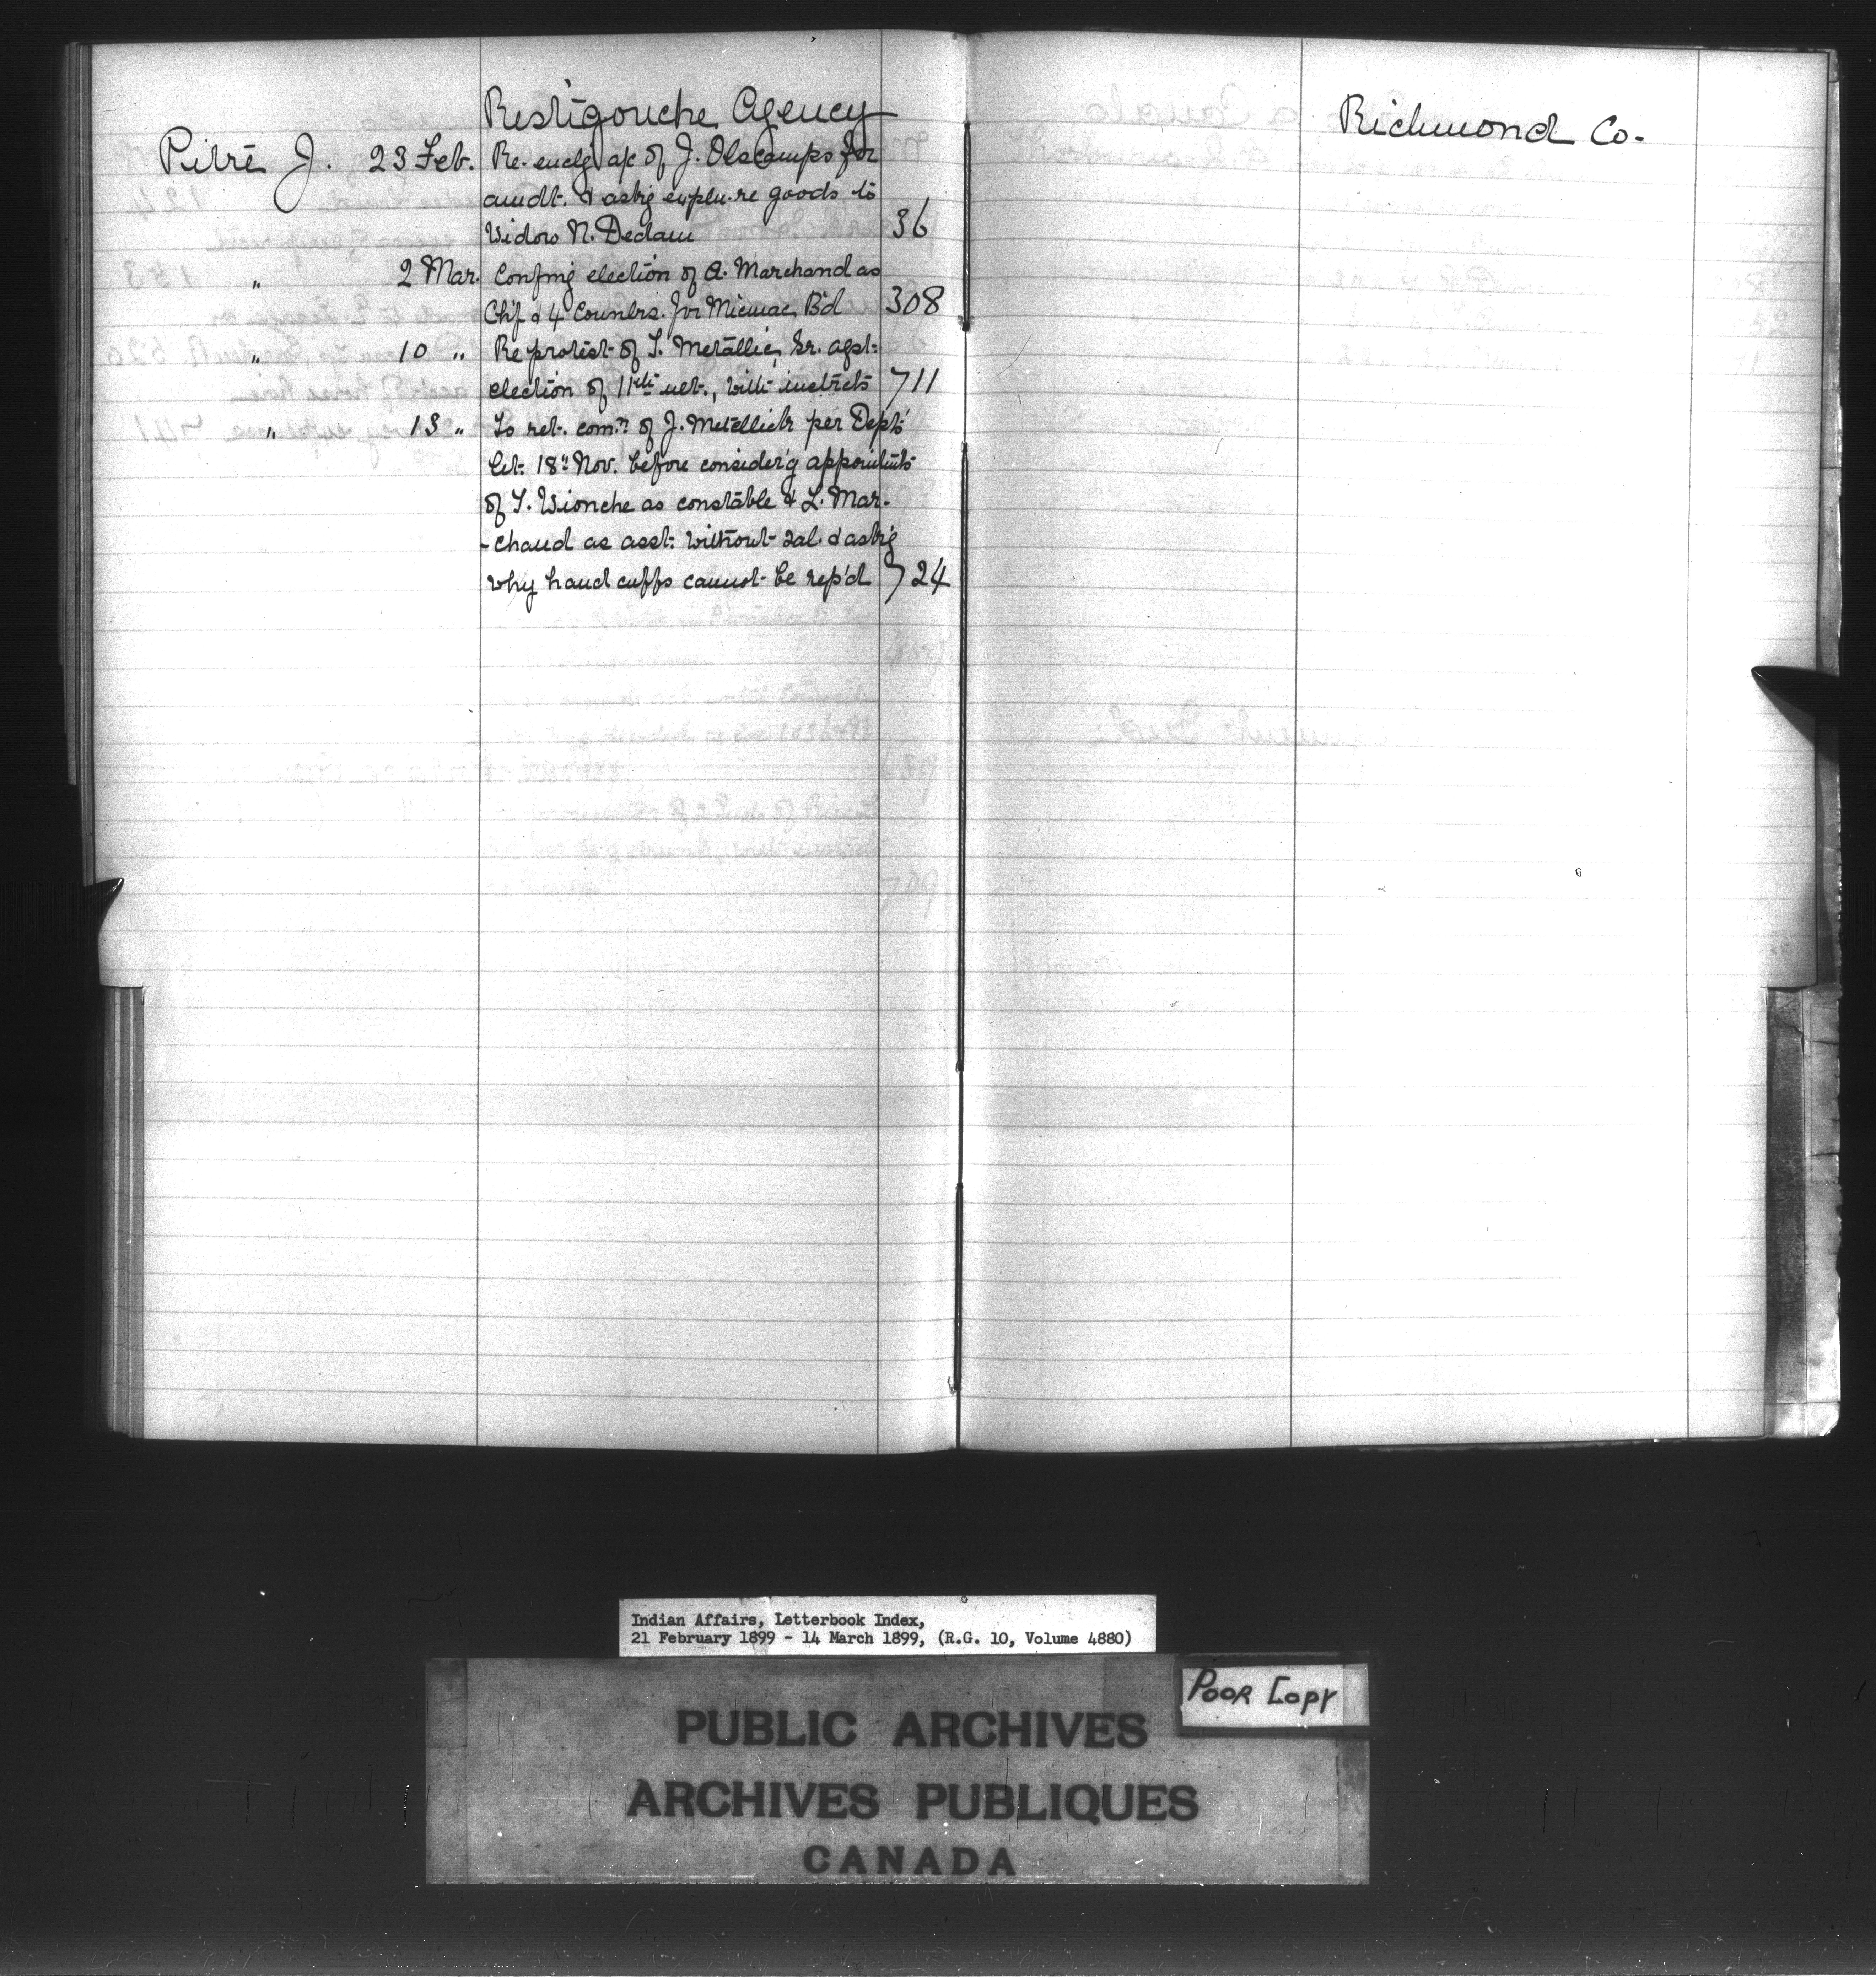 Restigouche Agency
Pitre J. 23 Feb. Re-enclg a/c of J. Olscamps for
amdt. & askg expln. re goods to
Widow N. Dedam 36
" 2 Mar. Confmg election of A. Marchand as
Chf & 4 Counlrs. for Micmac Bd 308
" 10 " Re protest of T. Metallic, Sr. agst.
election of 11th ult., with instrcts 711
" 13 " To ret. comn. of J. Metallick per Dept's
let. 18th Nov. before consider'g appointmts
of T. Wionche as constable & L. Mar-
-chand as asst. without sal. & ask'g
why hand cuffs cannot be rep'd 724
Richmond Co.
Indian Affairs, Letterbook Index,
21 February 1899 - 14 March 1899, (R.G. 10, Volume 4880)
Poor Copy
PUBLIC ARCHIVES
ARCHIVES PUBLIQUES
CANADA